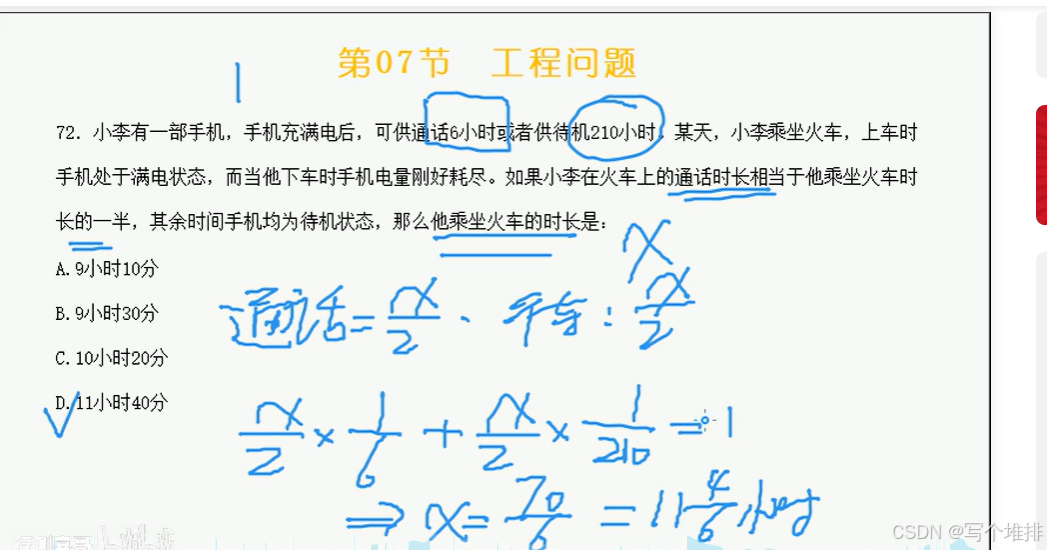 第07节 工程问题
1
72. 小李有一部手机，手机充满电后，可供通话6小时或者供待机210小时。某天，小李乘坐火车，上车时
手机处于满电状态，而当他下车时手机电量刚好耗尽。如果小李在火车上的通话时长相当于他乘坐火车时
长的一半，其余时间手机均为待机状态，那么他乘坐火车的时长是：
x
A.9小时10分
通话=x/2 . 乘车：x/2
B.9小时30分
C.10小时20分
D.11小时40分
x/2 × 1/6 + x/2 × 1/210 = 1
⇒ x = 70/6 = 11 4/6 小时
CSDN @写个堆排